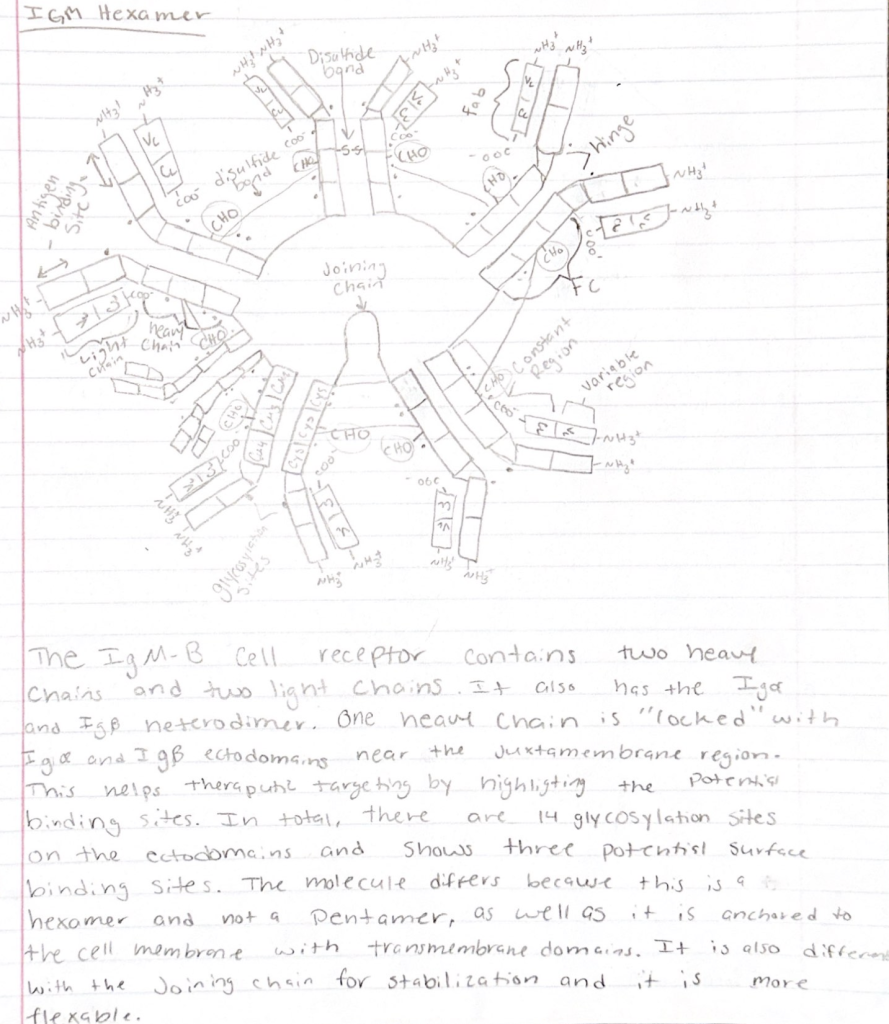 IGM Hexamer
NH3+
NH3+
Disulfide
bond
NH3+
NH3+
NH3+
NH3+
VL
CL
COO-
CHO
-S-S-
COO-
CHO
Fab
VL
CL
-OOC
CHO
Hinge
NH3+
NH3+
VL
CL
COO-
disulfide
bond
CHO
Antigen
binding
Site
NH3+
NH3+
COO-
CHO
FC
Joining
Chain
NH3+
NH3+
COO-
heavy
Chain
CHO
Light
Chain
Constant
Region
variable
region
CHO
COO-
NH3+
NH3+
CHO
COO-
NH3+
NH3+
CHO
CHO
COO-
-OOC
NH3+
NH3+
NH3+
NH3+
glycosylation
sites
The IgM-B cell receptor contains two heavy
chains and two light chains. It also has the Igα
and Igβ heterodimer. One heavy chain is "locked" with
Igα and IgB ectodomains near the Juxtamembrane region.
This helps theraputic targeting by highligting the potential
binding sites. In total, there are 14 glycosylation sites
on the ectodomains and shows three potential surface
binding sites. The molecule differs because this is a
hexamer and not a Pentamer, as well as it is anchored to
the cell membrane with transmembrane domains. It is also different
with the Joining chain for stabilization and it is more
flexable.